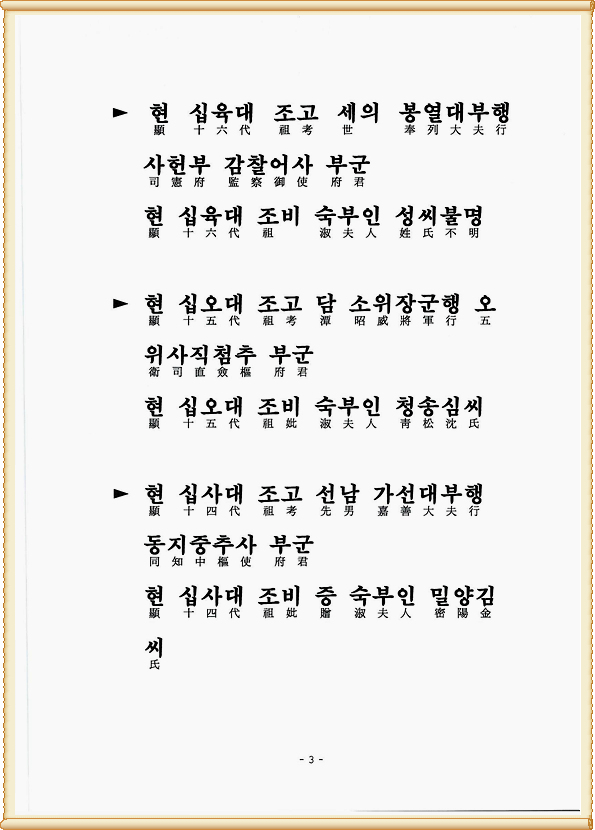 ► 현 십육대 조고 세의 봉열대부행
顯 十六代 祖考 世 奉列大夫行
사헌부 감찰어사 부군
司憲府 監察御使 府君
현 십육대 조비 숙부인 성씨불명
顯 十六代 祖 淑夫人 姓氏不明
► 현 십오대 조고 담 소위장군행 오
顯 十五代 祖考 潭 昭威將軍行 五
위사직첨추 부군
衛司直僉樞 府君
현 십오대 조비 숙부인 청송심씨
顯 十五代 祖妣 淑夫人 靑松沈氏
► 현 십사대 조고 선남 가선대부행
顯 十四代 祖考 先男 嘉善大夫行
동지중추사 부군
同知中樞使 府君
현 십사대 조비 증 숙부인 밀양김
顯 十四代 祖妣 贈 淑夫人 密陽金
씨
氏
- 3 -